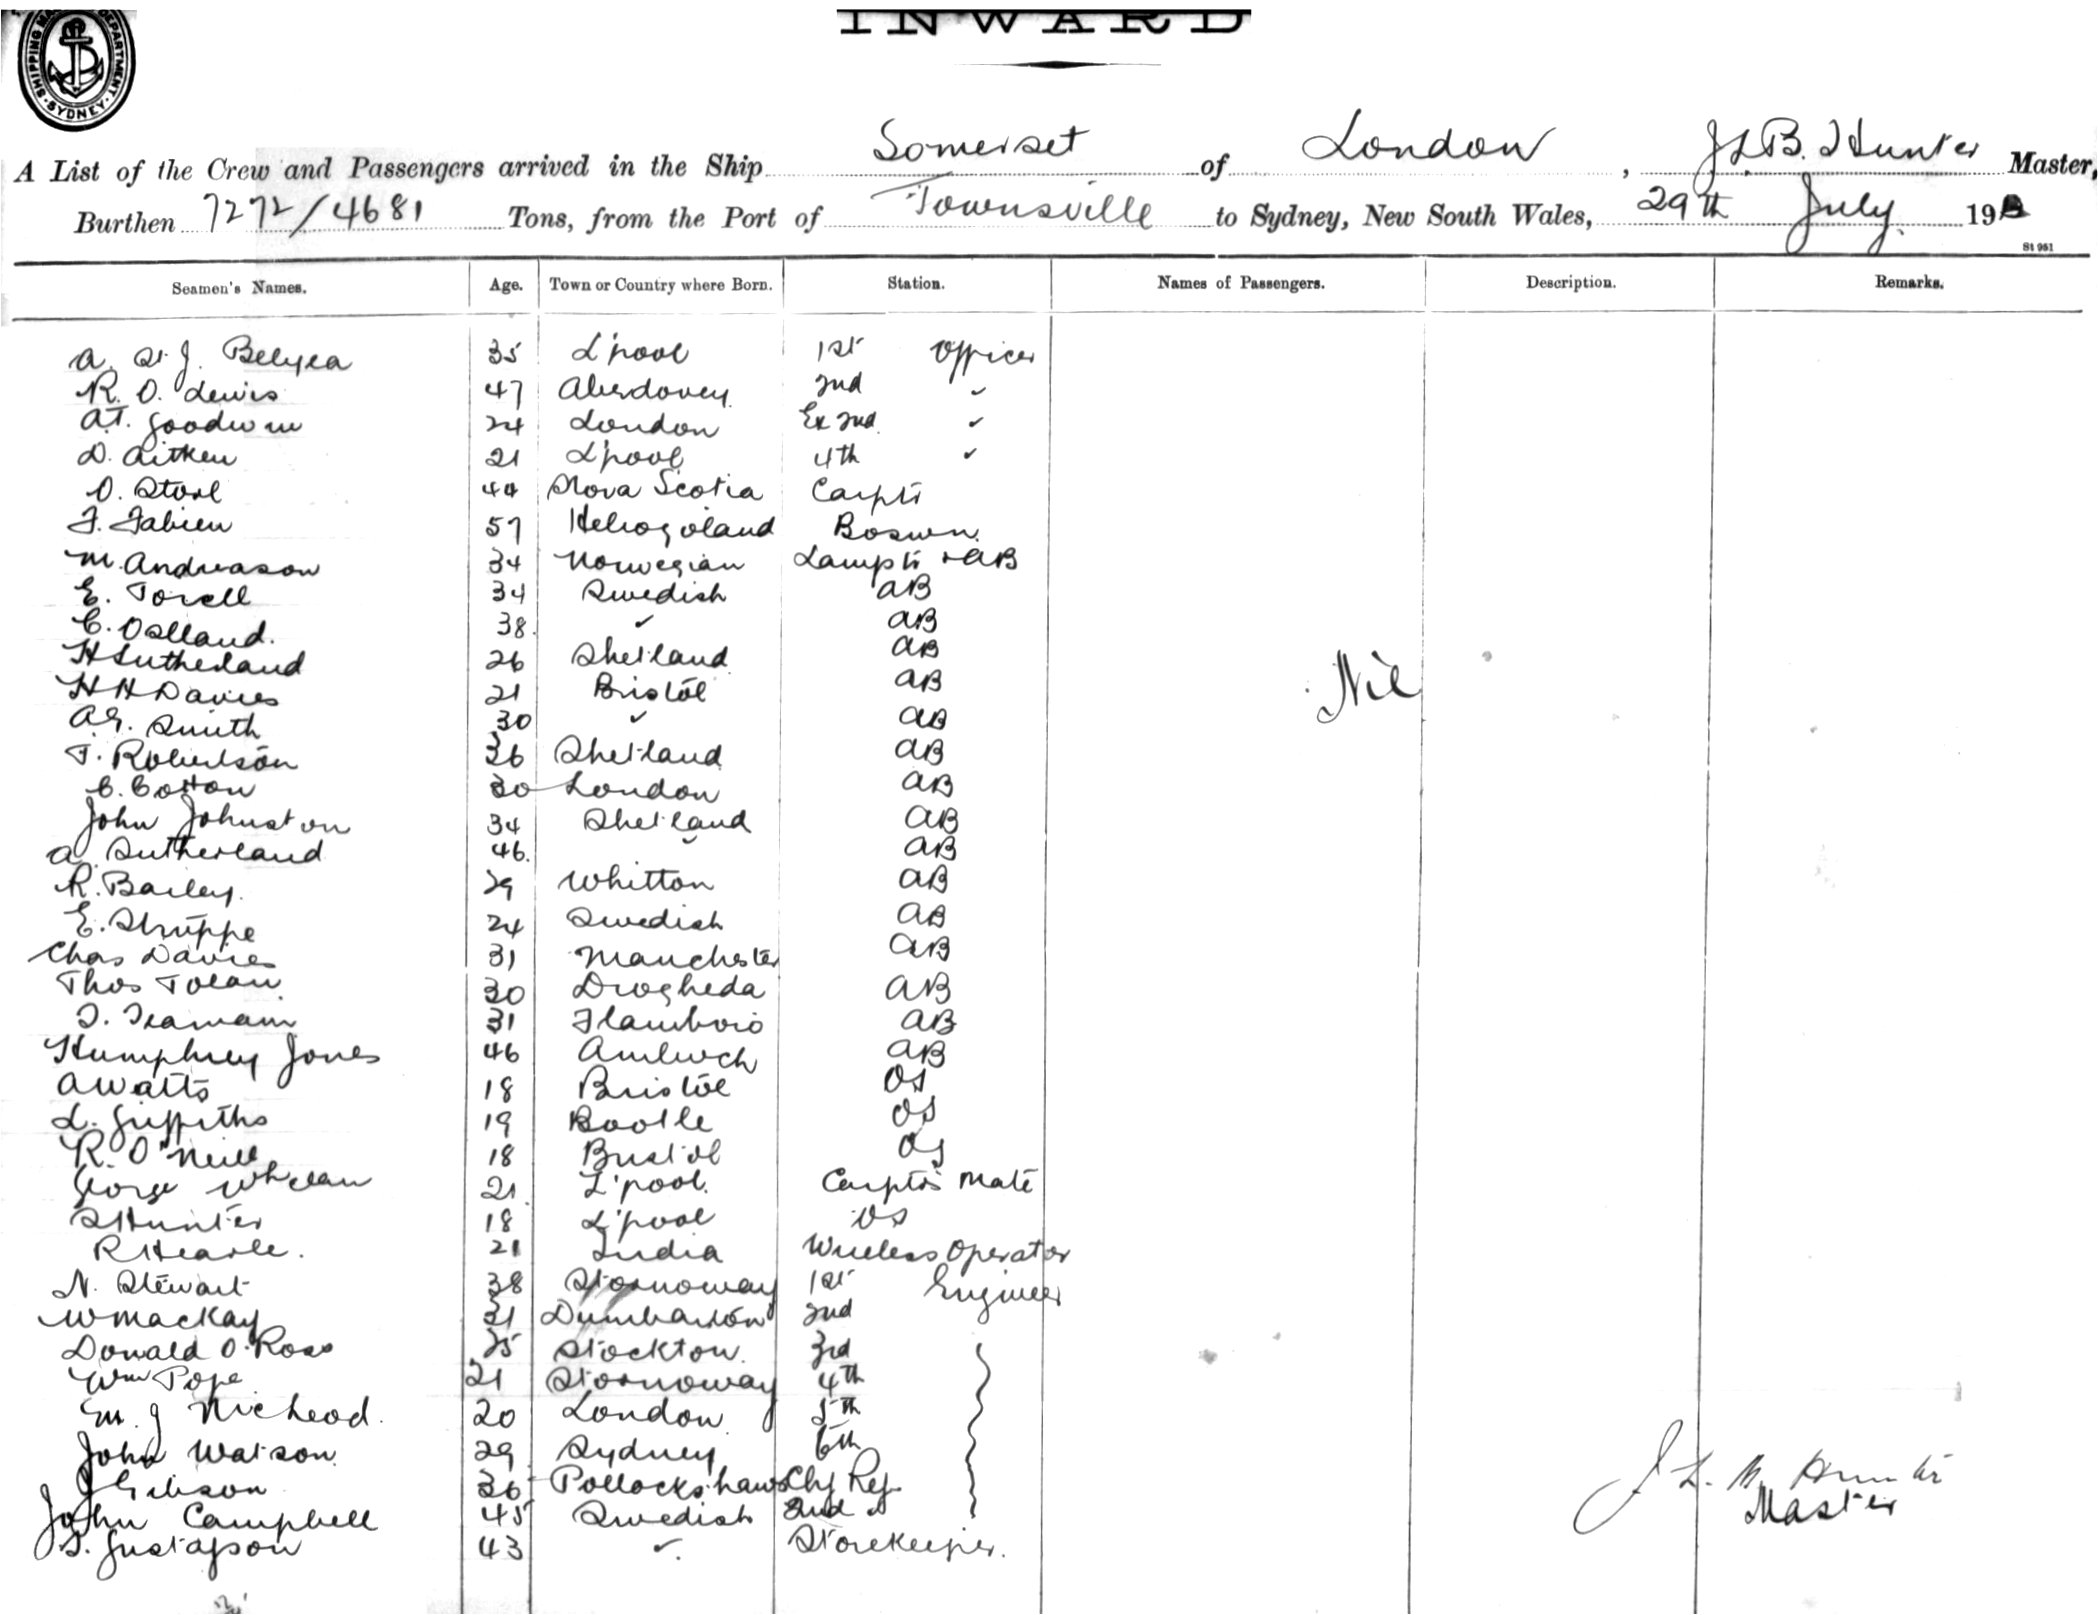 INWARD
SHIPPING MA DEPARTMENT. SYDNEY
A List of the Crew and Passengers arrived in the Ship Somerset of London, J L B. Hunter Master,
Burthen 7272/4681 Tons, from the Port of Townsville to Sydney, New South Wales, 29th July 19
St 951
Seamen's Names. Age. Town or Country where Born. Station. Names of Passengers. Description. Remarks.
A. St. J. Belyea 35 L'pool 1st Officer
R. O. Lewis 47 Aberdovey 2nd ✓
A.T. Goodwin 24 London Ex 2nd ✓
D. Aitken 21 L'pool 4th ✓
O. 44 Nova Scotia Carptr
F. Fabien 57 Heligoland Boswn.
M. Andreason 34 Norwegian Lamptr + AB
E. Torell 34 Swedish AB
C. Oslland. 38. ✓ AB
H Sutherland 26 Shetland AB
H H Davies 21 Bristol AB
A.G. Smith 30 ✓ AB
T. Robertson 36 Shetland AB
C. Cotton 30 London AB
John Johnston 34 Shetland AB
A. Sutherland 46. ✓ AB
R. Bailey. 29 Whitton AB
E. Struppe 24 Swedish AB
Chas Davies 31 Manchester AB
Thos Tolan 30 Drogheda AB
31 Flamboro AB
Humphrey Jones 46 Amlwch AB
A Watts 18 Bristol OS
L. Griffiths 19 Bootle OS
R. O'Neill 18 Bristol OS
George Whelan 21. L'pool. Carptrs Mate
S Hunter 18 L'pool OS
R Hearle. 21 India Wireless Operator
N. Stewart 38 Stornoway 1st Engineer
W Mackay 31 Dumbarton 2nd
Donald O. Ross 25 Stockton 3rd
Wm Pope 21 Stornoway 4th
M. J McLeod. 20 London 5th
John Watson 29 Sydney 6th
J Gibson 36 Pollockshaws Chf Ref.
John Campbell 45 Swedish 2nd
S. Gustafson 43 ✓. Storekeeper.
Nil
J. L. B. Hunter
Master